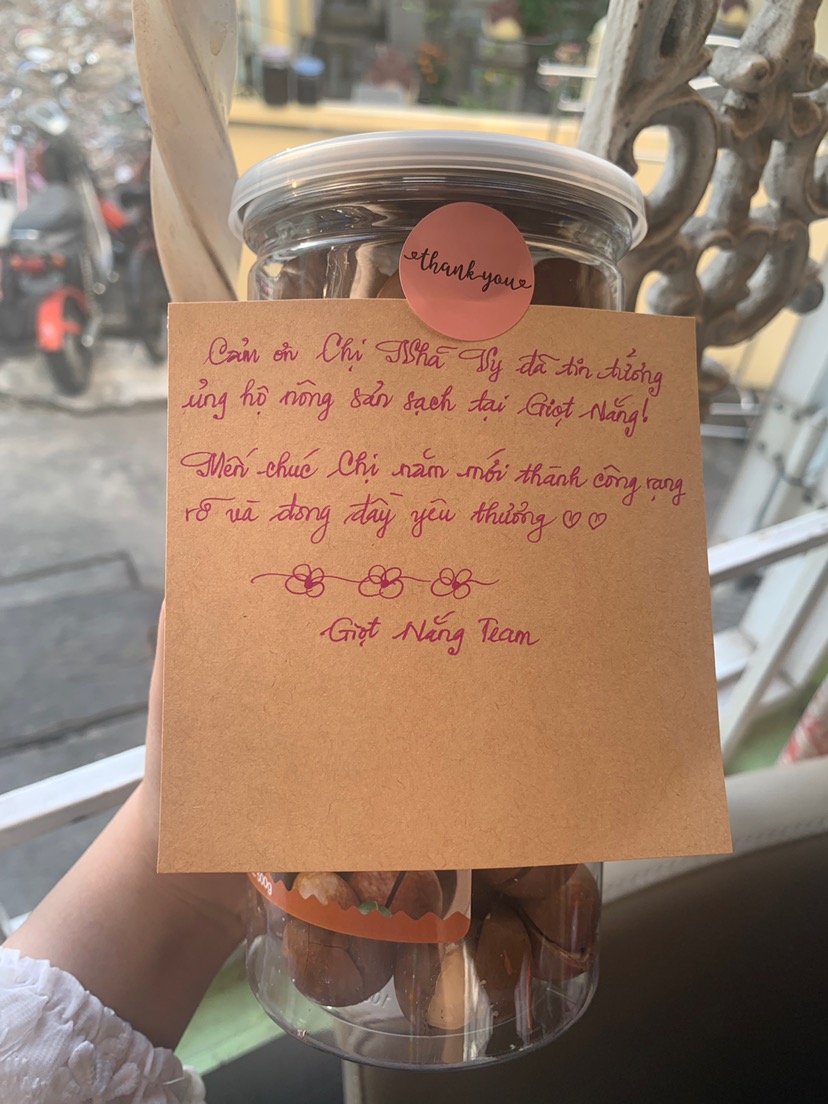 thank you
Cảm ơn Chị Nhã Vy đã tin tưởng
ủng hộ nông sản sạch tại Giọt Nắng!
Mến chúc Chị năm mới thành công rạng
rỡ và dong đầy yêu thương
Giọt Nắng Team
500g